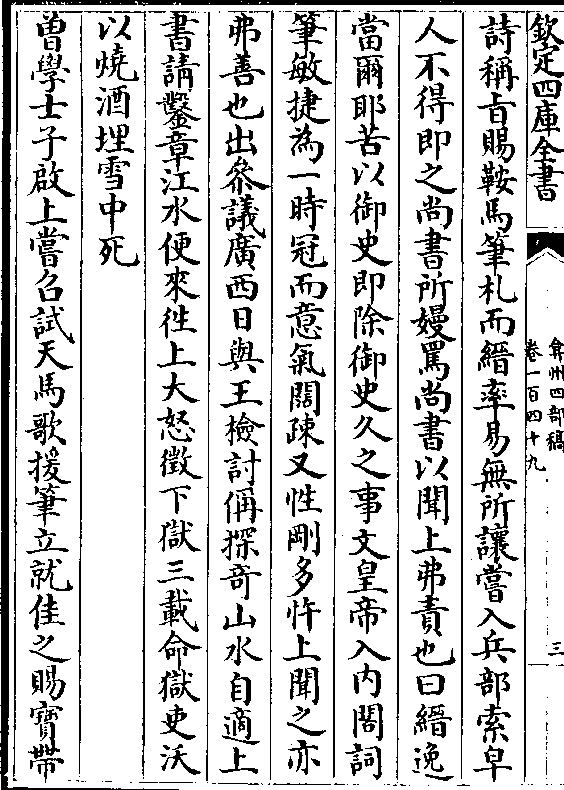 欽定四庫全書
弇州四部稿
卷一百四十九
三
詩稱旨賜鞍馬筆札而縉率易無所讓嘗入兵部索皁
人不得即之尚書所嫚罵尚書以聞上弗責也曰縉逸
當爾耶苦以御史即除御史久之事文皇帝入内閣詞
筆敏捷為一時冠而意氣闊疎又性剛多忤上聞之亦
弗善也出叅議廣西日與王檢討偁探竒山水自適上
書請鑿章江水便來徃上大怒徵下獄三載命獄吏沃
以燒酒埋雪中死
曽學士子啟上嘗召試天馬歌援筆立就佳之賜寶帶